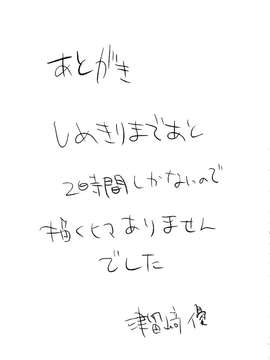 あとがき
しめきりまであと
2時間しかないので
描くヒマありません
でした
津留崎優